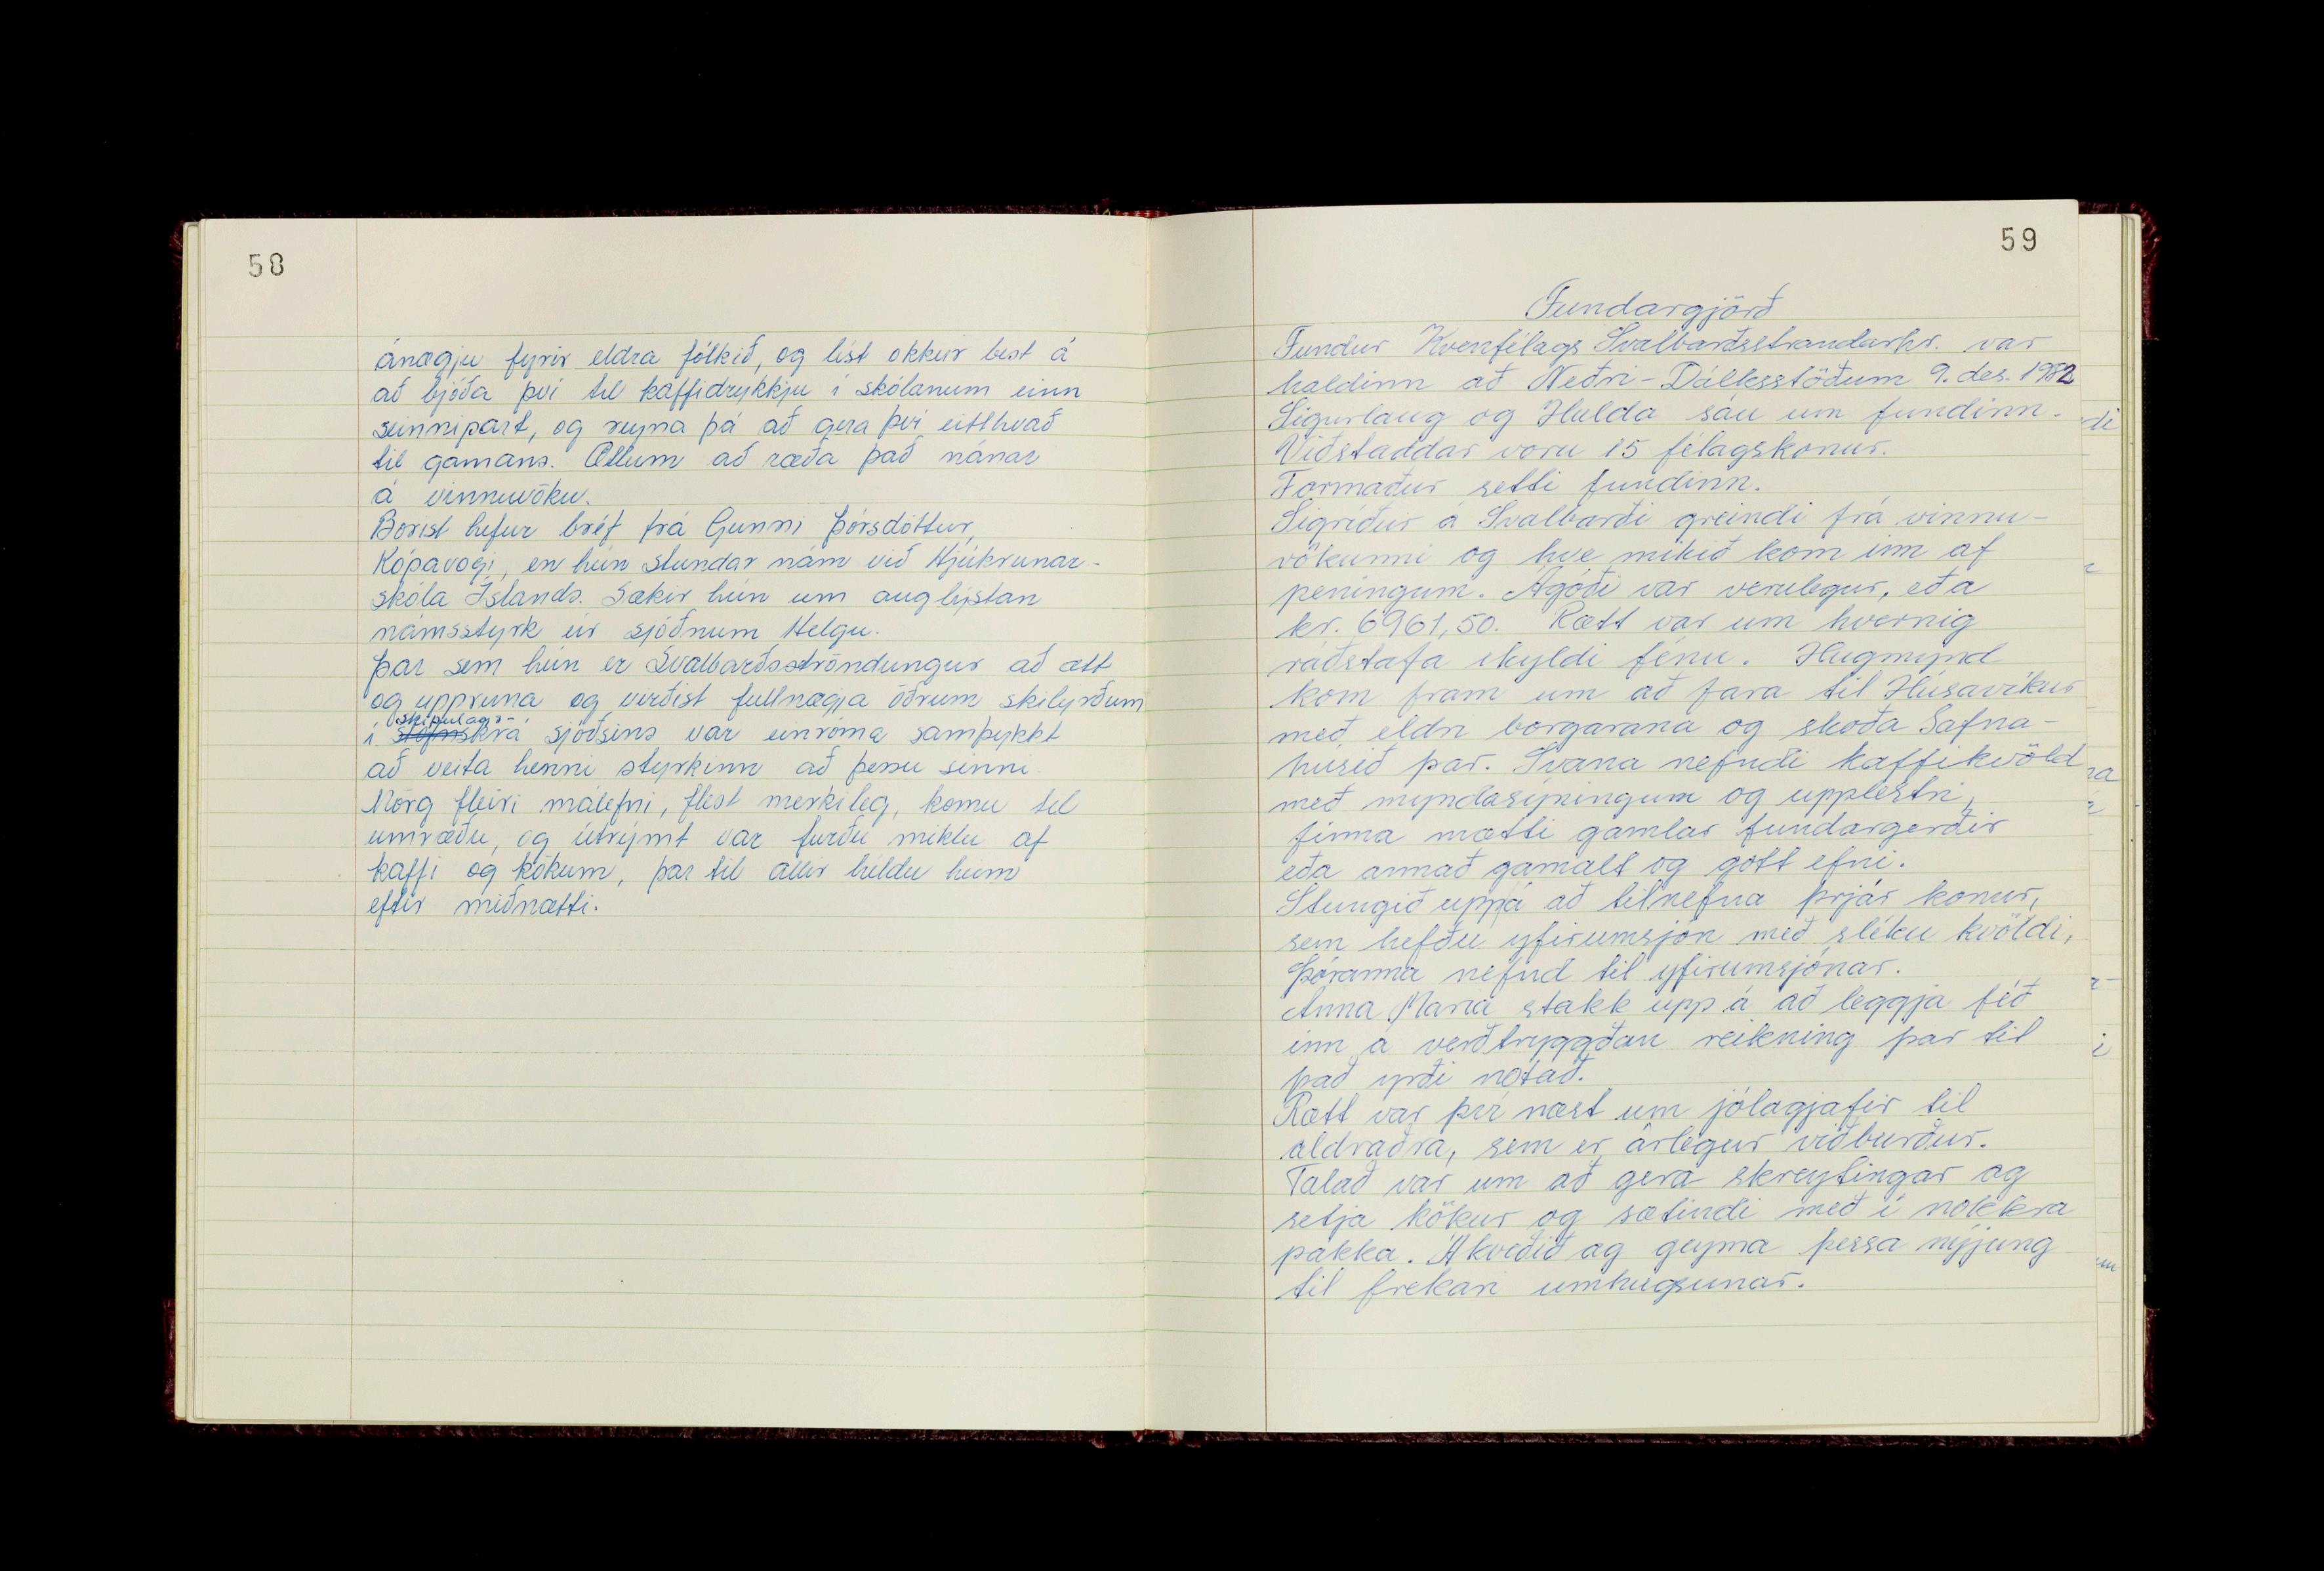 58
ánægju fyrir eldra fólkið, og líst okkur best á
að bjóða því til kaffidrykkju í skólanum einn
seinnipart, og reyna þá að gera því eitthvað
til gamans. Ætlum að ræða það nánar
á vinnuvöku.
Borist hefur bréf frá Gunni Þórsdóttur,
Kópavogi, en hún stundar nám við Hjúkrunar-
skóla Íslands. Sækir hún um auglýstan
námsstyrk úr sjóðnum Helgu.
Þar sem hún er Svalbarðsströndungur að ætt
og uppruna og virðist fullnægja öðrum skilyrðum
skipulags-
í stofnskrá sjóðsins var einróma samþykkt
að veita henni styrkinn að þessu sinni.
Mörg fleiri málefni, flest merkileg, komu til
umræðu, og útrýmt var furðu miklu af
kaffi og kökum, þar til allir héldu heim
eftir miðnætti.
59
Fundargjörð
Fundur Kvenfélags Svalbarðsstrandarhr. var
haldinn að Neðri-Dálksstöðum 9. des. 1982
Sigurlaug og Hulda sáu um fundinn.
Viðstaddar voru 15 félagskonur.
Formaður setti fundinn.
Sigríður á Svalbarði greindi frá vinnu-
vökunni og hve mikið kom inn af
peningum. Ágóði var verulegur, eða
kr. 6961,50. Rætt var um hvernig
ráðstafa skyldi fénu. Hugmynd
kom fram um að fara til Húsavíkur
með eldri borgarana og skoða Safna-
húsið þar. Svana nefndi kaffikvöld
með myndasýningum og upplestri,
finna mætti gamlar fundargerðir
eða annað gamalt og gott efni.
Stungið uppá að tilnefna þrjár konur,
sem hefðu yfirumsjón með slíku kvöldi,
Þóranna nefnd til yfirumsjónar.
Anna María stakk upp á að leggja féð
inn á verðtryggðan reikning þar til
það yrði notað.
Rætt var því næst um jólagjafir til
aldraðra, sem er árlegur viðburður.
Talað var um að gera skreytingar og
setja kökur og sætindi með í nokkra
pakka. Ákveðið ag geyma þessa nýjung
til frekari umhugsunar.